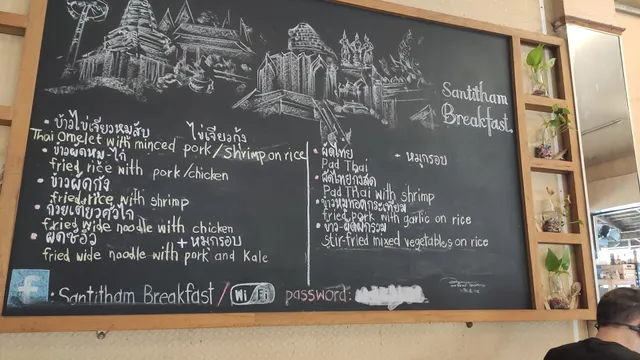 Santitham
Breakfast
• ข้าวไข่เจียวหมูสับ ไข่เจียวกุ้ง
Thai omelet with minced pork/shrimp on rice
• ข้าวผัดหมู-ไก่
fried rice with pork/chicken
• ข้าวผัดกุ้ง
fried rice with shrimp
• ก๋วยเตี๋ยวคั่วไก่
fried wide noodle with chicken
• ผัดซีอิ๊ว + หมูกรอบ
fried wide noodle with pork and Kale
• ผัดไทย - หมูกรอบ
Pad Thai
• ผัดไทยกุ้งสด
Pad Thai with shrimp
• ข้าวหมูทอดกระเทียม
fried pork with garlic on rice
• ข้าว-ผัดผักรวม
stir-fried mixed vegetables on rice
f : Santitham Breakfast / WiFi password: